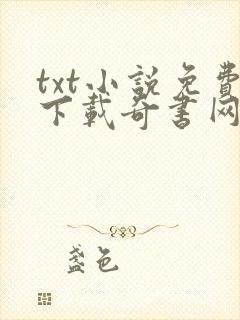 txt小說免費
下載奇書网
盞色